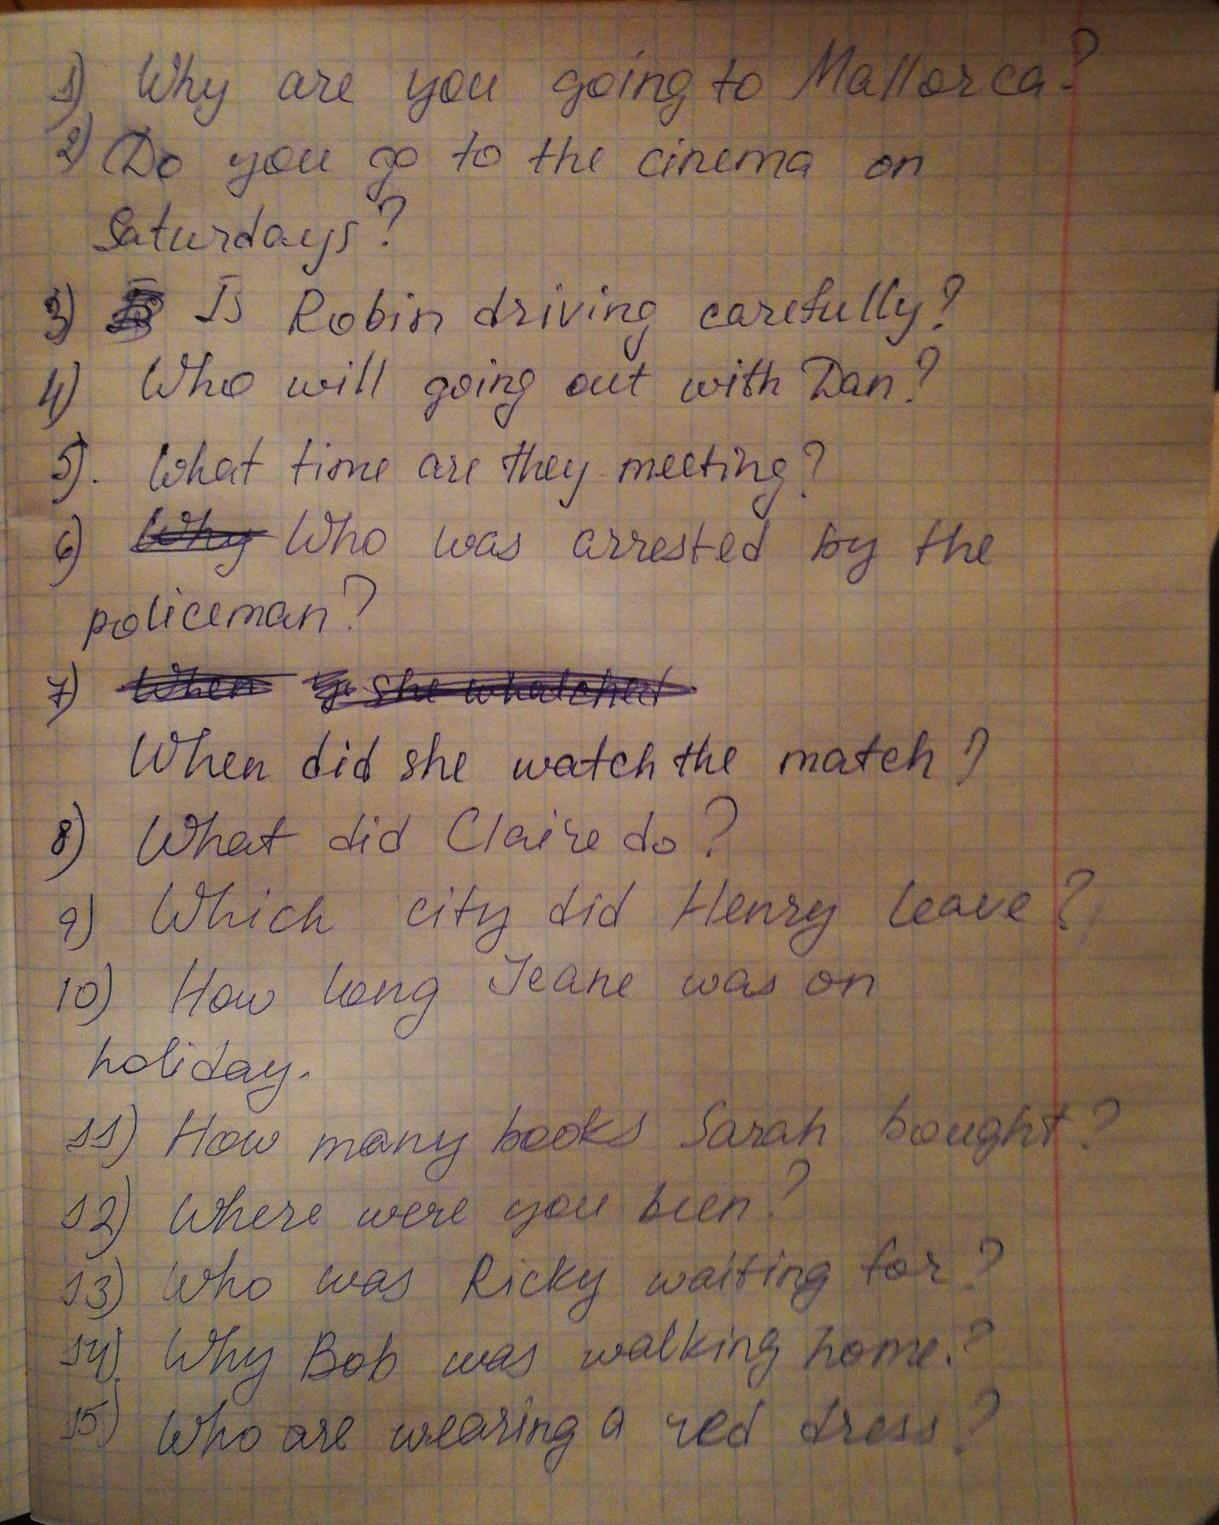 1) Why are you going to Mallorca?
2) Do you go to the cinema on
Saturdays?
3) Is Robin driving carefully?
4) Who will going out with Dan?
5). What time are they meeting?
6) Why Who was arrested by the
policeman?
7) When she whatched
When did she watch the match?
8) What did Claire do?
9) Which city did Henry leave?
10) How long Jeane was on
holiday.
11) How many books Sarah bought?
12) Where were you been?
13) Who was Ricky waiting for?
14) Why Bob was walking home.?
15) Who are wearing a red dress?